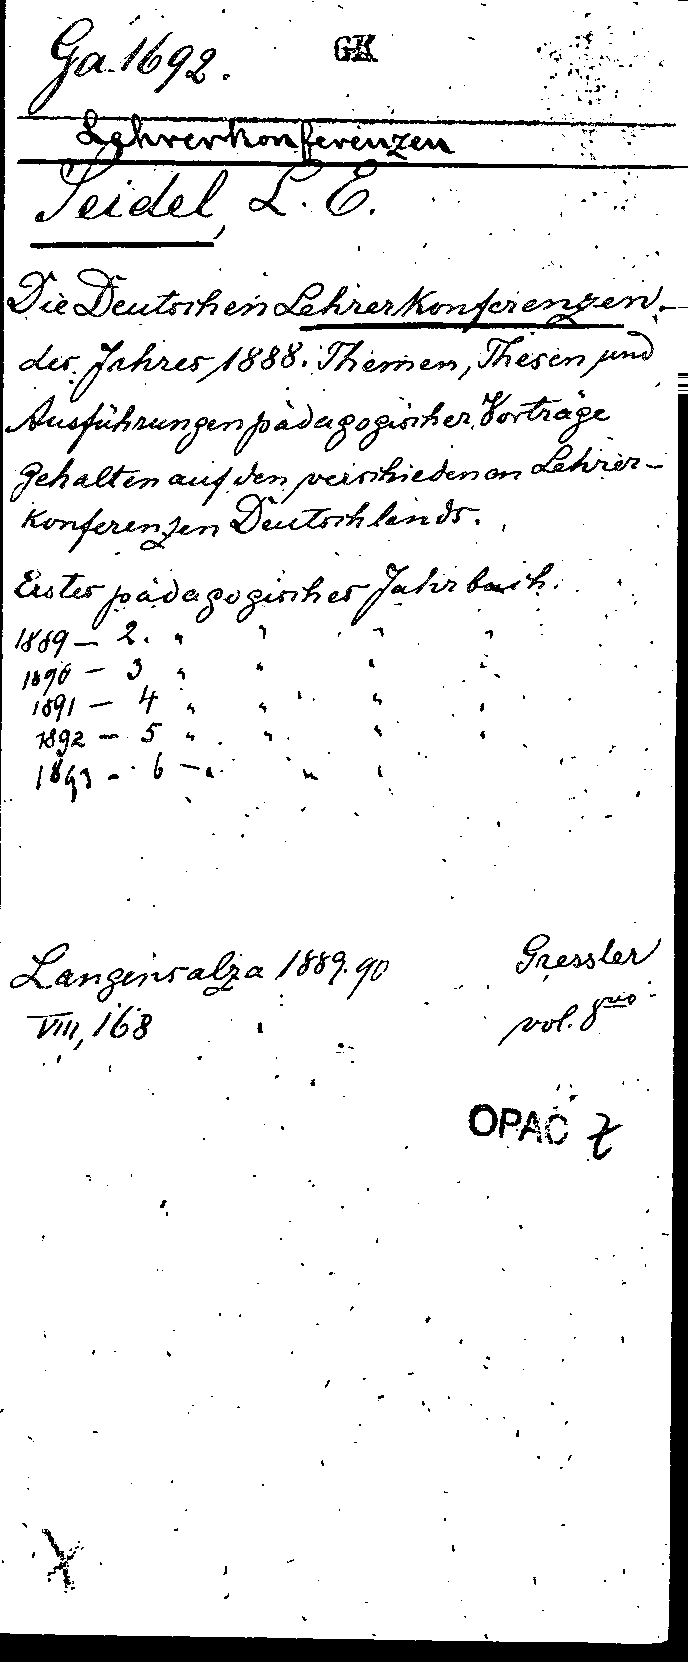 Ga. 1692. GK
Lehrerkonferenzen
Seidel, L. E.
Die Deutschen Lehrerkonferenzen.
des Jahres 1888. Themen, Thesen und
Ausführungen pädagogischer Vorträge
gehalten auf den verschiedenen Lehrer-
konferenzen Deutschlands.
Erstes pädagogisches Jahrbuch.
1889 — 2. " " " "
1890 — 3 " " " "
1891 — 4 " " " "
1892 — 5 " " " "
1893 — 6 — " " "
Langensalza 1889.90 Gressler
VIII, 168 vol. 8vo
OPAC